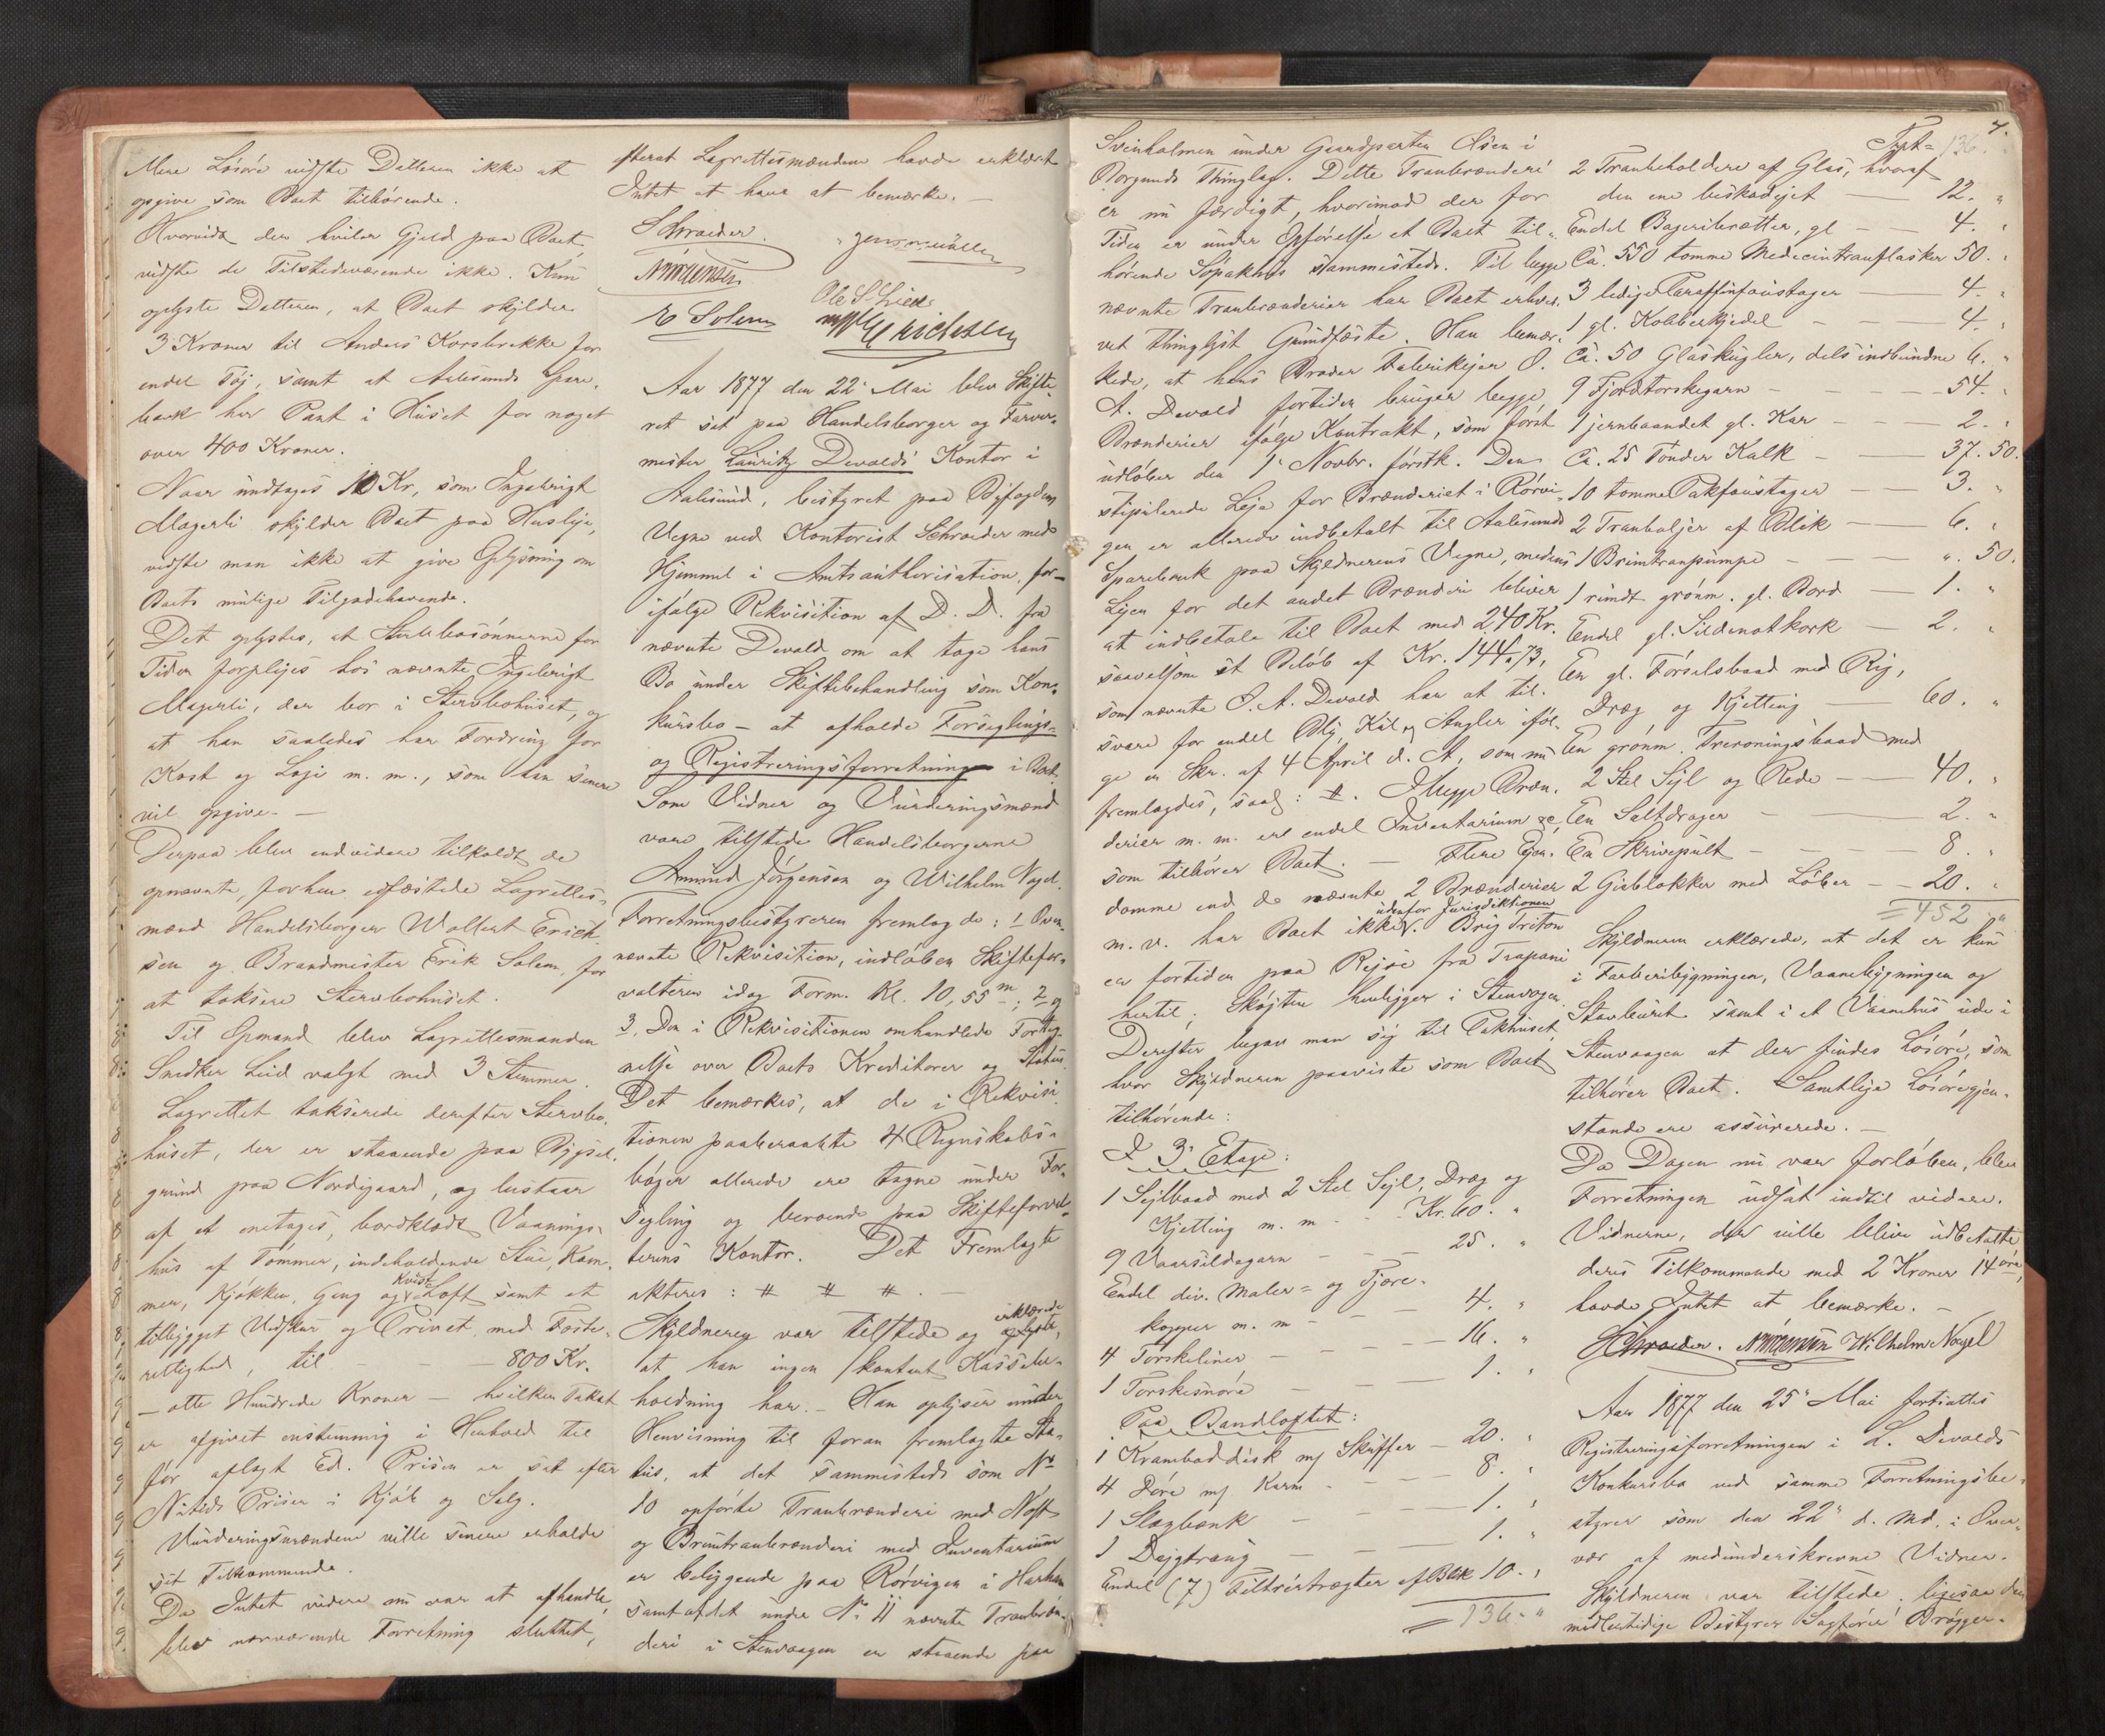 Mere Lösöre vidste Detteren ikke at
opgive som Boet tilhörende.
Hvorvidt der hviler Gjæld paa Boet
vidste de Tilstedeværende ikke. Kun
oplyste Detteren, at Boet skylder
3 Kroner til Anders Korsbrekke for
endel Töj, samt at Aalesunds Spare-
bank har Pant i Huset for noget
over 400 Kroner.
Naar undtages 10 Kr, som Ingebrigt
Magerli skylder Boet paa Husleje,
vidste man ikke at give Oplysning om
Boets mulige Tilgodehavende.
Det oplystes, at Stervbosönnerne for
Tiden forplejes hos nævnte Ingebrigt
Magerli, der bor i Stervbohuset, og
at han saaledes har Fordring for
Kost og Logi m. m., som han senere
vil opgive. —
Derpaa blev endvidere tilkaldt de
opnævnte, forhen edfæstede Lagrettes-
mænd Handelsborger Wollert Erich-
sen og Brandmester Erik Solem, for
at taksere Stervbohuset.
Til Opmand blev Lagrettesmanden
Snedker Lied valgt med 3 Stemmer.
Lagrettet takserede derefter Stervbo-
huset, der er staaende paa Bygsel-
grund paa Nordigaard, og bestaar
af et enetages, bordklædt Vaanings-
hus af Tömmer, indeholdende Stue, Kam-
mer, Kjökken, Gang og Kvist Loft samt et
tilbygget Vedskur og Privet med Fæste-
rettighed, til — — — 800 Kr.
— otte Hundrede Kroner — hvilken Takst
er afgivet enstemmig i Henhold til
för aflagt Ed. Prisen er sat efter
Nutids Priser i Kjöb og Salg.
Vurderingsmændene ville senere erholde
sit Tilkommende.
Da Intet videre nu var at afhandle,
blev nærværende Forretning sluttet,
efterat Lagrettesmændene havde erklæret
Intet at have at bemærke. —
Schroeder. Jens Møller
A Jörgensen Ole S. Lied
E Solem W Erichsen
Aar 1877 den 22de Mai blev Skifte-
ret sat paa Handelsborger og Farver-
mester Lauritz Devolds Kontor i
Aalesund, bestyret paa Byfogdens
Vegne ved Kontorist Schroeder med
Hjemmel i Amtsauthorisation, for-
ifølge Rekvisition af D. D. fra
nævnte Devold om at tage hans
Bo under Skiftebehandling som Kon-
kursbo — at afholde Forseglings-
og Registreringsforretning i Boet.
Som Vidner og Vurderingsmænd
vare tilstede Handelsborgerne
Amund Jörgensen og Wilhelm Nagel.
Forretningsbestyreren fremlagde: 1 Oven-
nævnte Rekvisition, indlöben Skiftefor-
valteren idag Form. Kl. 10,55 m; 2 og
3, Den i Rekvisitionen omhandlede Forteg-
nelse over Boets Kreditorer og Status.
Det bemærkes, at de i Rekvisi-
tionen paaberaabte 4 Regnskabs-
böger allerede ere tagne under For-
segling og beroende paa Skifteforval-
terens Kontor. Det Fremlagte
akteres: # # #. —
Skyldneren var tilstede og erklærede oplyste,
at han ingen kontant Kassebe-
holdning har. — Han oplyser under
Henvisning til foran fremlagte Sta-
tus, at det sammesteds som No
10 opförte Tranbrænderi med Nöst
og Bruntranbrænderi med Inventarium
er beliggende paa Rörvigen i Harham
samt at det under No 11 nævnte Tranbræn-
deri i Stenvaagen er staaende paa
7.
Svinholmen under Gaardparten Olsen i
Borgunds Thinglag. Dette Tranbrænderi
er nu færdigt, hvorimod der for
Tiden er under Opförelse et Boet til-
hörende Söpakhus sammesteds. Til begge
nævnte Tranbrænderier har Boet erhver-
vet thinglyst Grundfæste. Han bemær-
kede, at hans Broder Fabrikejer O.
A. Devold fortiden bruger begge
Brænderier ifölge Kontrakt, som först
udlöber den 1ste Novbr. förstk. Den
stipulerede Leje for Brænderiet i Rörvi-
gen er allerede indbetalt til Aalesunds
Sparebank paa Skyldnerens Vegne, medens
Lejen for det andet Brænderi bliver
at indbetale til Boet med 240 Kr.
saavelsom et Belöb af Kr. 144,73,
som nævnte O. A. Devold har at til-
svare for endel Bly, Kul og Angler iföl-
ge en Skr. af 4 April d. A, som nu
fremlagdes, saal: #. I begge Bræn-
derier m. m. ere endel Inventarium &c,
som tilhörer Boet. — Flere Ejen-
domme end de nævnte 2 Brænderier
m. v. har Boet ikke udenfor Jurisdiktionen. Brig Triton
er fortiden paa Rejse fra Trapani
hertil; Skøjten henligger i Stenvogen.
Derefter begav man sig til Pakhuset,
hvor Skyldneren paaviste som Boet
tilhörende:
I 3die Etage:
1 Sejlbaad med 2 Stel Sejl, Dræg og
Kjetting m. m. - - Kr. 60. "
9 Vaarsildegarn - - - 25. "
Endel div. Maler- og Tjære-
kopper m. m - - - 4. "
4 Torskeliner - - - 16. "
1 Torskesnöre - - - 1. "
Paa Bandloftet:
1 Krambaddisk m/ Skuffer - 20. "
4 Döre m/ Karm - - - 8. "
1 Slagbænk - - - 1. "
1 Dejgtraug - - - 1. "
Endel (7) Filtrértragter af Blik 10. "
= 136. "
Trpt = 136.
2 Tranbeholdere af Glas, hvoraf
den ene beskadiget — 12. "
Endel Bageribrætter, gl — 4. "
Ca. 550 tomme Medecintranflasker 50. "
3 ledige Paraffinfoustager — 4. "
1 gl. Kobberkjedel - — 4. "
Ca. 50 Glaskugler, dels indbundne 6. "
9 Fjordtorskegarn - - - 54. "
1 jernbaandet gl. Kar - - 2. "
Ca. 25 Tönder Kalk - — 37. 50.
10 tomme Pakfoustager — 3. "
2 Tranbaljer af Blik — 6. "
1 Bruntranpumpe - — ". 50.
1 rundt grönm. gl. Bord — 1. "
Endel gl. Sildenotkork — 2. "
En gl. Förselsbaad med Rig,
Dræg og Kjetting — 60. "
En grönm. Treroningsbaad med
2 Stel Sejl og Rede — 40. "
En Saltdrager - — 2. "
En Skrivepult - - - 8. "
2 Gieblokker med Löber - - 20. "
= 452 "
Skyldneren erklærede, at det er kun
i Farveribygningen, Vaanebygningen og
Stavburet samt i et Vaanehus ude i
Stenvaagen at der findes Lösöre, som
tilhörer Boet. Samtlige Lösöregjen-
stande ere assurerede. —
Da Dagen nu var forlöben, blev
Forretningen udsat indtil videre.
Vidnerne, der ville blive udbetalte
deres Tilkommende med 2 Kroner 14 öre,
havde Intet at bemærke. —
Schroeder. A Jörgensen Wilhelm Nagel
Aar 1877 den 25de Mai fortsattes
Registreringsforretningen i L. Devolds
Konkursbo ved samme Forretningsbe-
styrer som den 22de d. Md. i Over-
vær af medunderskrevne Vidner.
Skyldneren var tilstede, ligesaa den
midlertidige Bestyrer Sagförer Brögger.